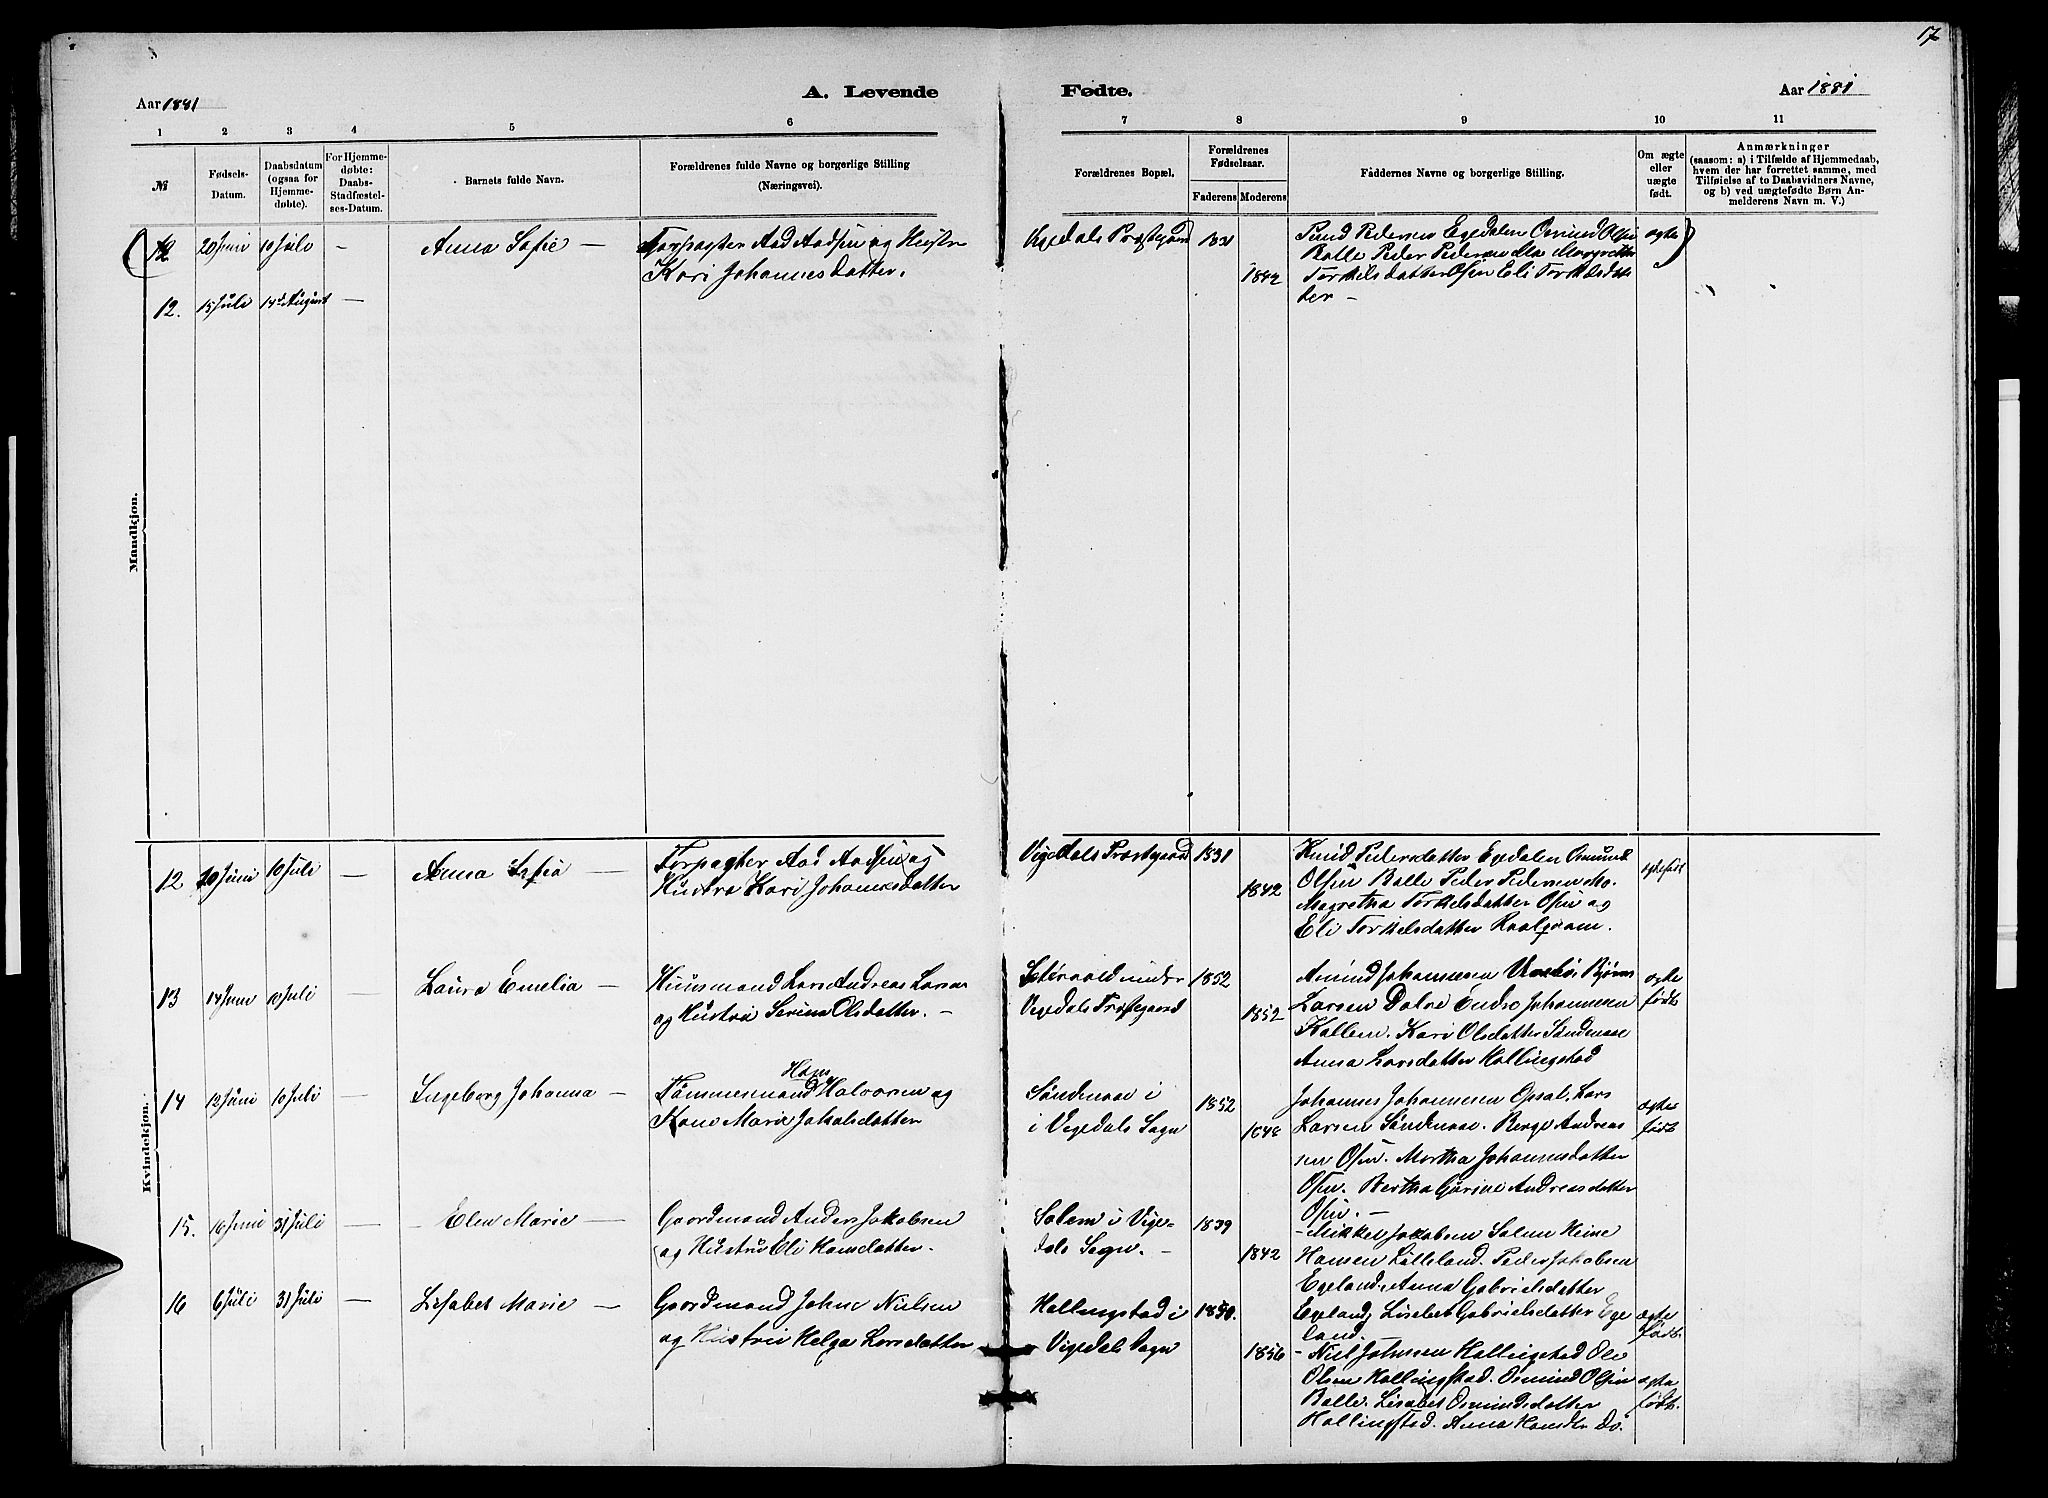 17
Aar 1881
A. Levende
Fødte.
Aar 1881
1 2 3 4 5 6 7 8 9 10 11
№
Fødsels-
Datum.
Daabsdatum
(ogsaa for
Hjemme-
døbte).
For Hjemme-
døbte:
Daabs-
Stadfæstel-
ses-Datum.
Barnets fulde Navn.
Forældrenes fulde Navne og borgerlige Stilling
(Næringsvei).
Forældrenes Bopæl.
Forældrenes
Fødselsaar.
Faderens Moderens
Fåddernes Navne og borgerlige Stilling.
Om ægte
eller
uægte
født.
Anmærkninger
(saasom: a) i Tilfælde af Hjemmedaab,
hvem der har forrettet samme, med
Tilføielse af to Daabsvidners Navne,
og b) ved uægtefødte Børn An-
melderens Navn m. V.)
Mandkjøn.
12 20 Juni 10 Juli — Anna Sofie —
Forpagter Aad Aadsen og Hustru
Kari Johannesdatter.
Vigedals Præstegaard
1831
1842
Pedersen Egedalen Osmund Olsen
Balle Peder Pedersen Mo Margretha
Torkelsdatter Osen Eli Torkelsdat-
ter —
ægte
12. 15 Juli 14de August —
Kvindekjøn.
12 20 Juni 10 Juli — Anna Sofia —
Forpagter Aad Aadsen og
Hustru Kari Johannesdatter
Vigedals Præstegaard
1831
1842
Knud Pedersdatter Egedalen Osmund
Olsen Balle Peder Pedersen Mo.
Magretha Torkelsdatter Osen og
Eli Torkelsdatter
ægtefødt
13 14 Juni 10 Juli — Laura Emelia —
Huusmand Lars Andreas Larsen
og Hustru Serina Olsdatter. —
under
Vigedals Præstegaard
1852
1852
Amund Johannesen Bjørn
Larsen Endre Johannesen
Kallem. Kari Olsdatter Søndenaae
Anna Larsdatter Hallingstad
ægte
født
14 12 Juni 10 Juli — Ingeborg Johanna —
Hans
Tømmermand Halvorsen og
Kone Marie Jakobsdatter
Søndenaae i
i Vigedals Sogn
1852
1848
Johannes Johannesen Opsal. Lars
Larsen Søndenaae. Berge Andreas
sen Osen. Martha Johannesdatter
Osen. Bertha Gurine Andreasdatter
Osen. —
ægte
født
15. 16 Juni 31 Juli — Elen Marie —
Gaardmand Anders Jakobsen
og Hustru Eli Hansdatter.
Salem i Vige-
dals Sogn. —
1839
1842
— Mikkel Jakobsen Salem Heine
Hansen Lilleland. Peder Jakobsen
Egeland, Anna Gabrielsdatter
Egeland, Lisabet Gabrielsdatter Ege
land.
ægte
født
16 6 Juli 31 Juli — Lisabet Marie —
Gaardmand Johne Nielsen
og Hustru Helga Larsdatter
Hallingstad i
Vigedals Sogn
1850.
1856
— Niel Johnsen Hallingstad Ole
Olsen Hallingstad. Osmund Olsen
Balle. Lisabet Osmundsdatter
Hallingstad. Anna Do.
ægte
født.